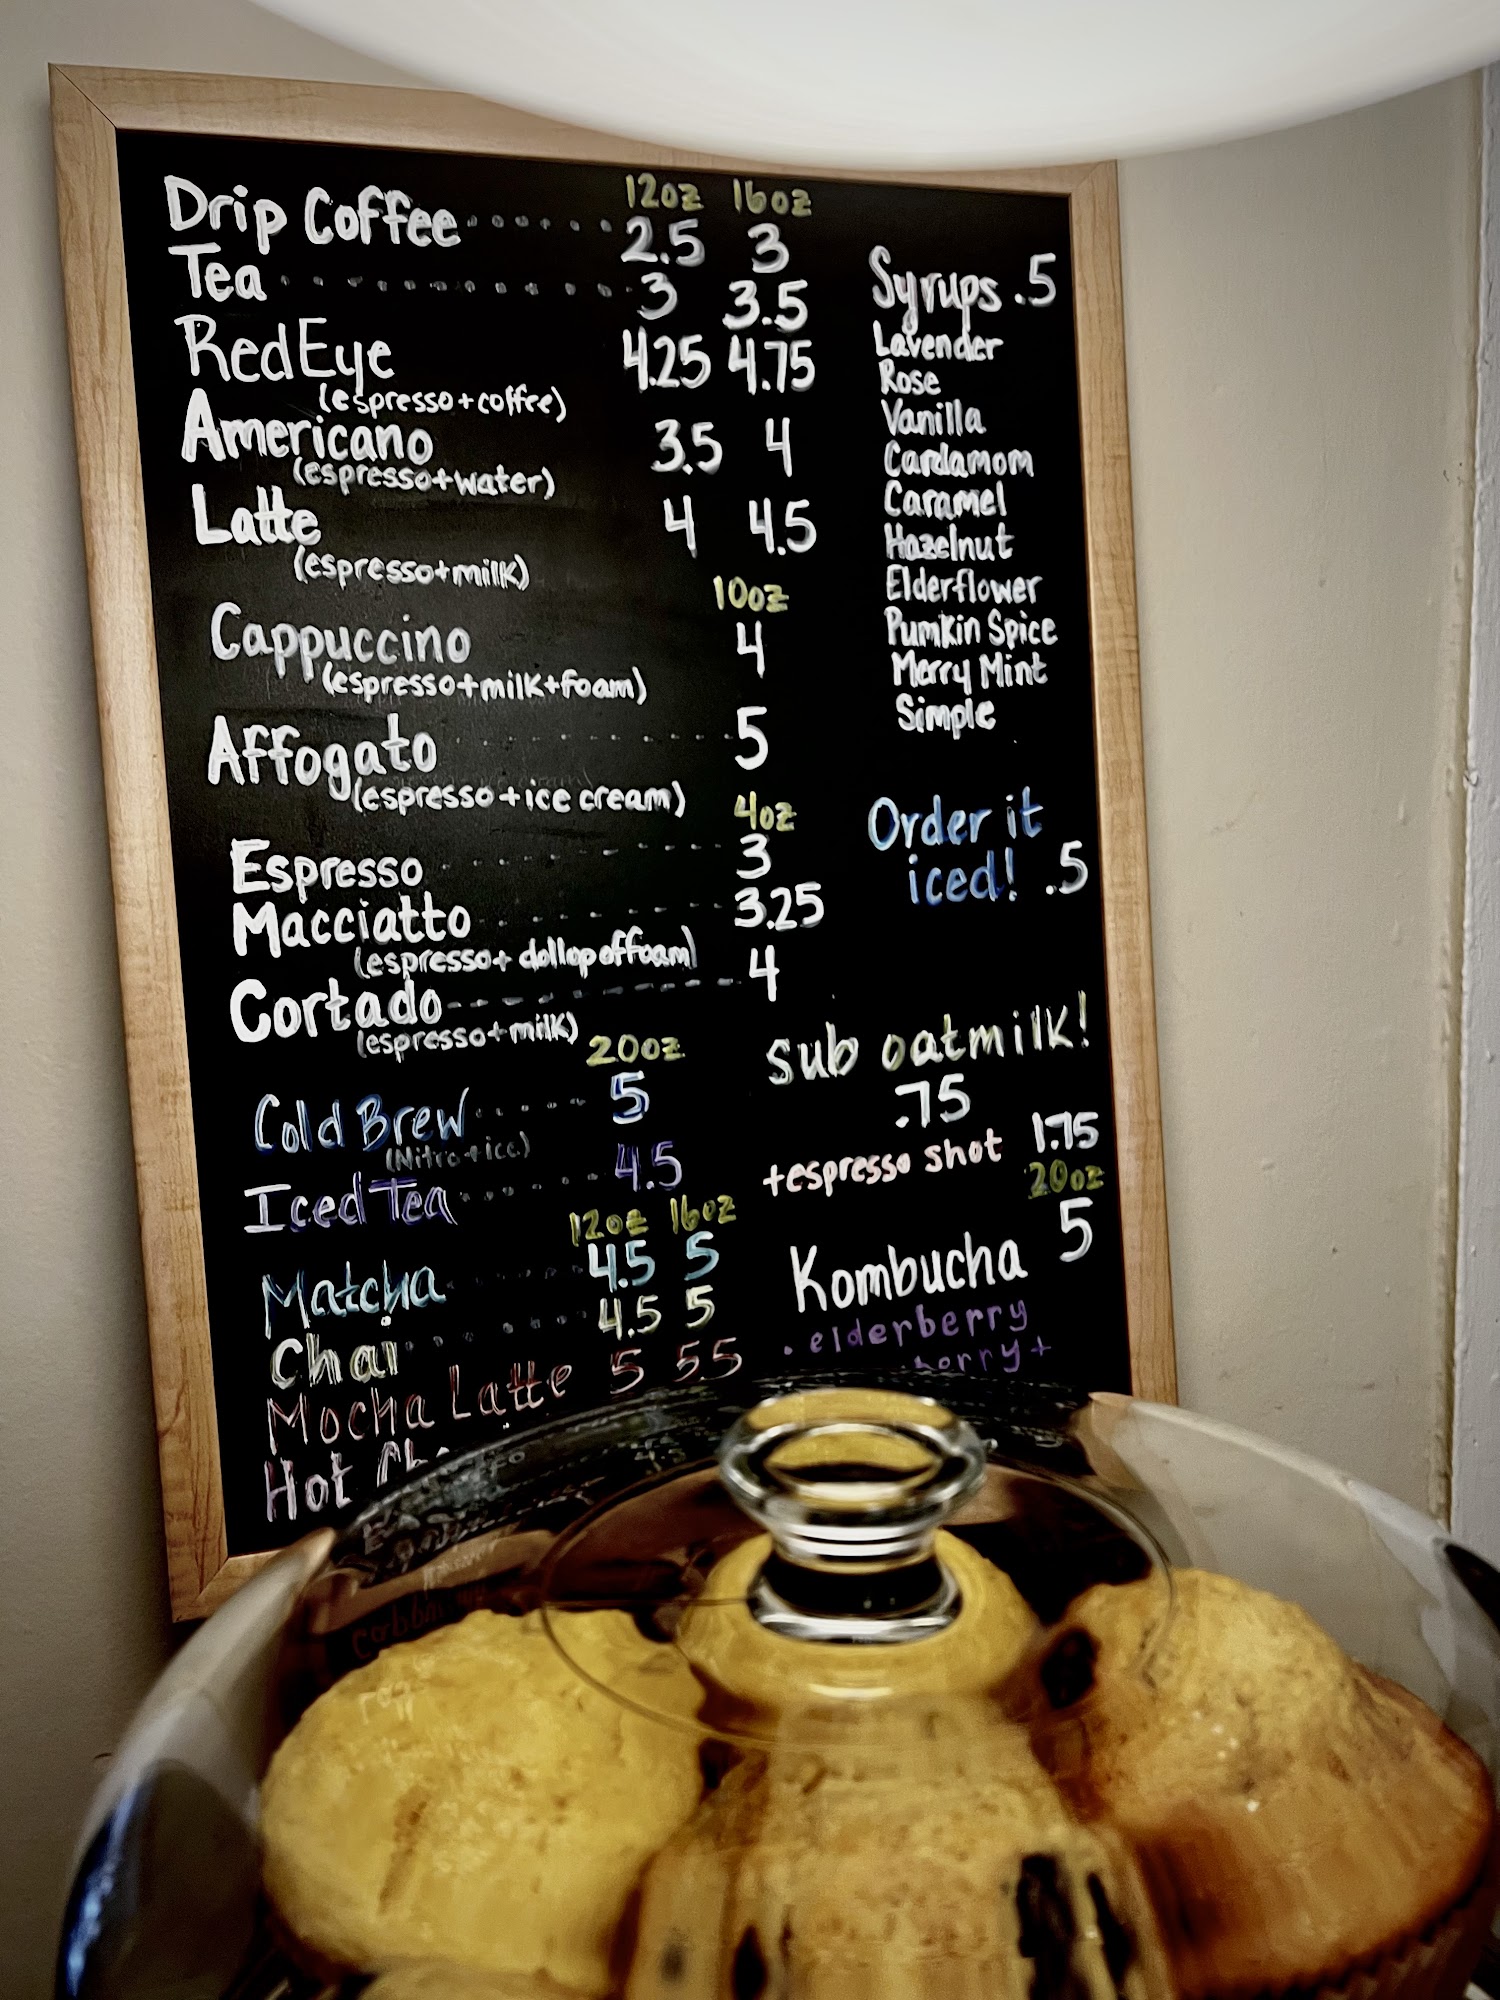 12oz 16oz
Drip Coffee 2.5 3
Tea 3 3.5
Red Eye 4.25 4.75
(espresso+coffee)
Americano 3.5 4
(espresso+water)
Latte 4 4.5
(espresso+milk)
10oz
Cappuccino 4
(espresso+milk+foam)
Affogato 5
(espresso+ice cream)
4oz
Espresso 3
Macciatto 3.25
(espresso+dollop of foam)
Cortado 4
(espresso+milk)
20oz
Cold Brew 5
(Nitro+ice)
Iced Tea 4.5
12oz 16oz
Matcha 4.5 5
Chai 4.5 5
Mocha Latte 5 5.5
Hot
Syrups .5
Lavender
Rose
Vanilla
Cardamom
Caramel
Hazelnut
Elderflower
Pumkin Spice
Merry Mint
Simple
Order it
iced! .5
sub oatmilk!
.75
+espresso shot 1.75
20oz
Kombucha 5
. elderberry